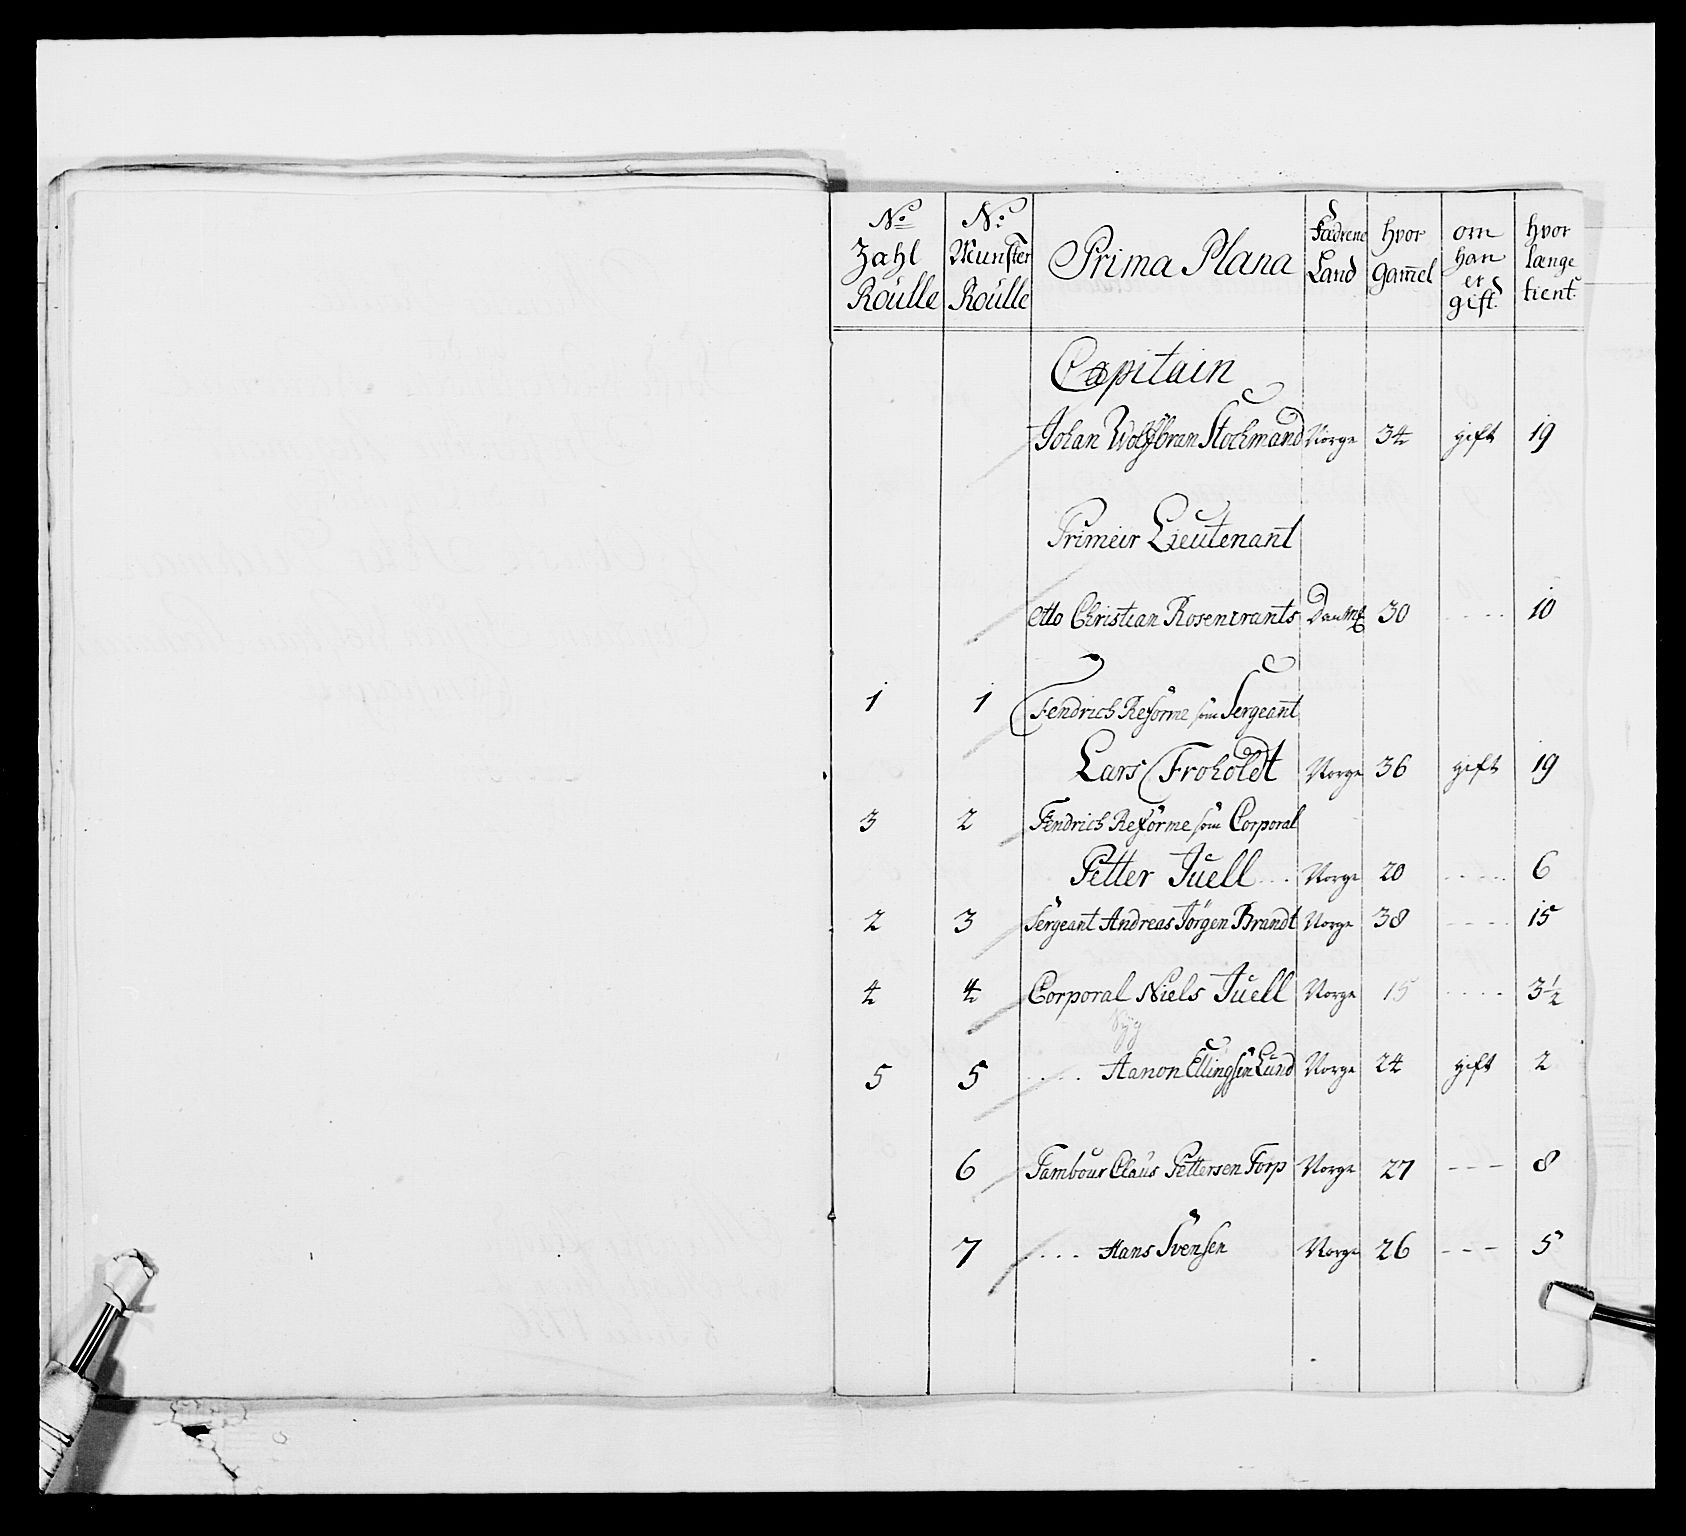 No. Zahl Roulle | No. Munster Roulle | Prima Plana | Fædrene Land | hvor gam̄el | om han er gift. | hvor længe tient.
Capitain
Johan Wolffbran Stochmand Norge 34 gift 19
Primeir Lieutenant
Otto Christian Rosencrants Danmk 30 .... 10
1 1 Fendrich Reforme som Sergeant
Lars Froholdt Norge 36 gift 19
3 2 Fendrich Reforme som Corporal
Petter Juell ... Norge 20 ..... 6
2 3 Sergeant Andreas Jörgen Brandt Norge 38 .... 15
4 4 Corporal Niels Juell Norge 15 .... 3½
Syg
5 5 .... Aanon Ellingsen Lund Norge 24 gift 2
6 Tambour Claus Pettersen Torp Norge 27 --- 8
7 .... Hans Svensen Norge 26 --- 5